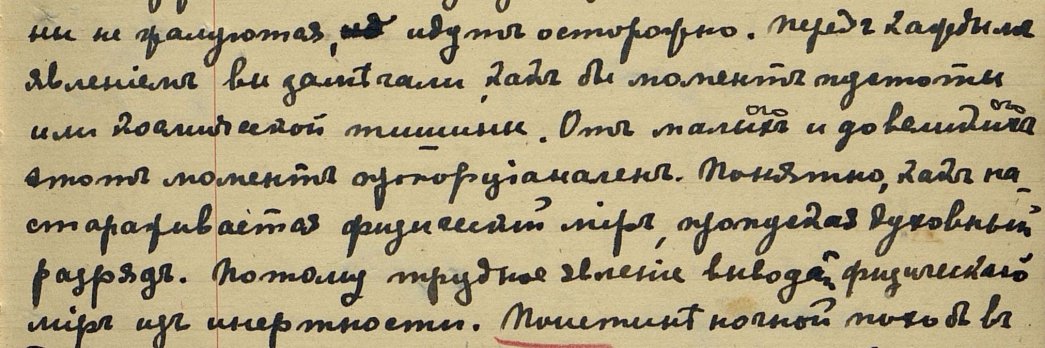 ни не жалуются, идутъ осторожно. Передъ каждымъ
явленiемъ вы замѣчали какъ бы моментъ пустоты
или космической тишины. Отъ малыхъ и до великихъ
этотъ моментъ пропорцiоналенъ. Понятно, какъ на
стараживается физическiй мiръ, пропуская духовный
разрядъ. Потому трудное явленiе вывода физическаго
мiръ изъ инертности. Поистинѣ ночной походъ въ